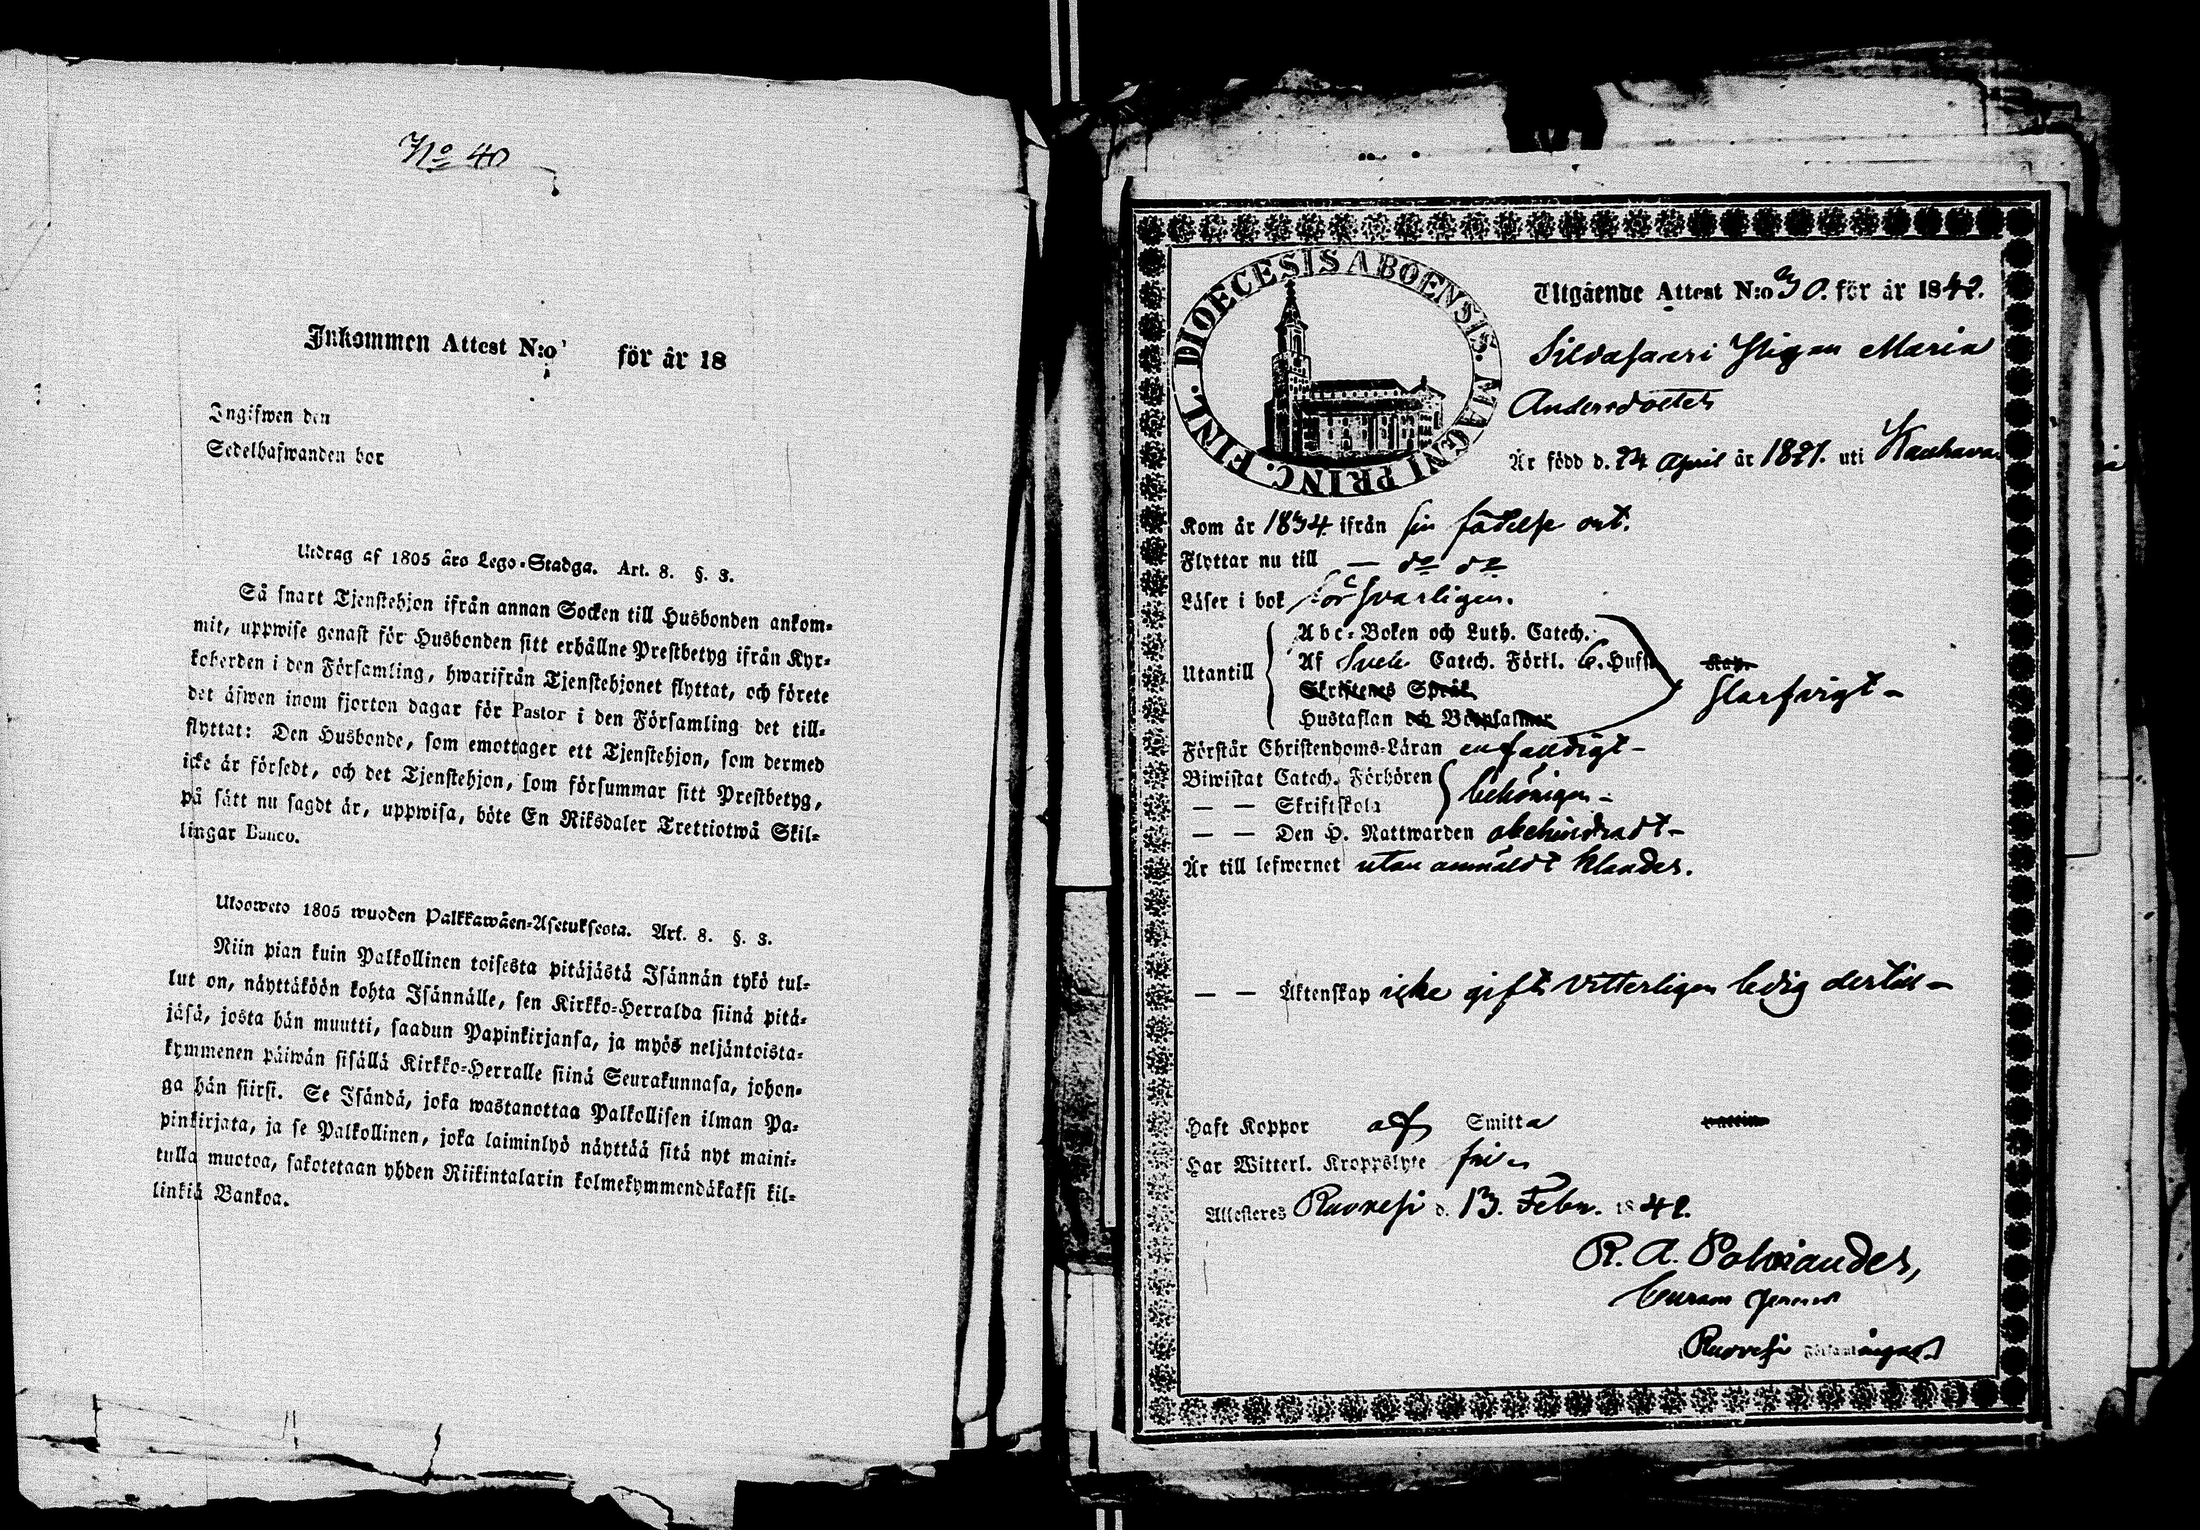 No 40
Inkommen Attest N:o för år 18
Ingifwen den
Sedelhafwanden bor
Utdrag af 1805 års Lego-Stadga. Art. 8. §. 3.
Så snart Tjenstehjon ifrån annan Socken till Husbonden ankom-
mit, uppwise genast för Husbonden sitt erhållne Prestbetyg ifrån Kyr-
koherden i den Församling, hwarifrån Tjenstehjonet flyttat, och förete
det äfwen inom fjorton dagar för Pastor i den Församling det till-
flyttat: Den Husbonde, som emottager ett Tjenstehjon, som dermed
icke är försedt, och det Tjenstehjon, som försummar sitt Prestbetyg,
på sätt nu sagdt är, uppwisa, böte En Riksdaler Trettiotwå Skil-
lingar Banco.
Ulosweto 1805 wuoden Palkkawäen-Asetuksesta. Art. 8. §. 3.
Niin pian kuin Palkollinen toisesta pitäjästä Isännän tykö tul-
lut on, näyttäköön kohta Isännälle, sen Kirkko-Herralda siinä pitä-
jäsä, josta hän muutti, saadun Papinkirjansa, ja myös neljäntoista-
kymmenen päiwän sisällä Kirkko-Herralle siinä Seurakunnasa, johon-
ga hän siirsi. Se Isändä, joka wastanottaa Palkollisen ilman Pa-
pinkirjata, ja se Palkollinen, joka laiminlyö näyttää sitä nyt maini-
tulla muotoa, sakotetaan yhden Riikintalarin kolmekymmendäkaksi kil-
linkiä Bankoa.
DIOECESIS ABOENSIS. MAGNI PRINC. FINL.
Utgående Attest N:o 30. för år 1842.
Pigan Maria
Andersdotter
Är född d. 24 April år 1821. uti Kauhava
Kom år 1834 ifrån sin födelse ort.
Flyttar nu till — do do
Läser i bok försvarligen.
Utantill
Abc-Boken och Luth. Catech.
Af Sveb Catech. Förkl. 6. Hufst.
Skriftenes Språk
Hustaflan och Botpsalmer
Förstår Christendoms-Läran enfaldigt –
Biwistat Catech. Förhören
— — Skriftskola
behörigen –
— — Den H. Nattwarden obehindradt –
Är till lefwernet utan anmäldt klander.
— — Äktenskap icke gift, vitterligen ledig dertill –
Haft Koppor af Smitta
Har Witterl. Kroppslyte fri
Attesteras Ruovesi d. 13. Febr. 1842.
R. A. Polviander,
Ruovesi Församlings